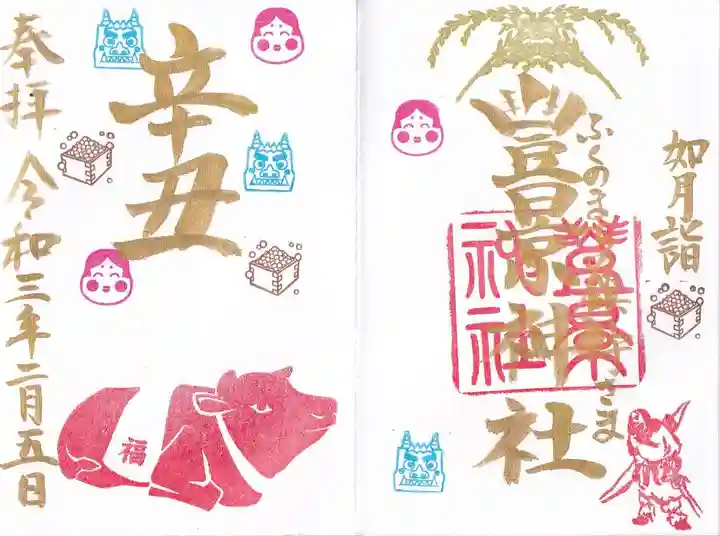 如月詣
ふくの さま
豊景神社
豊景
神社
辛丑
奉拝 令和三年二月五日
福